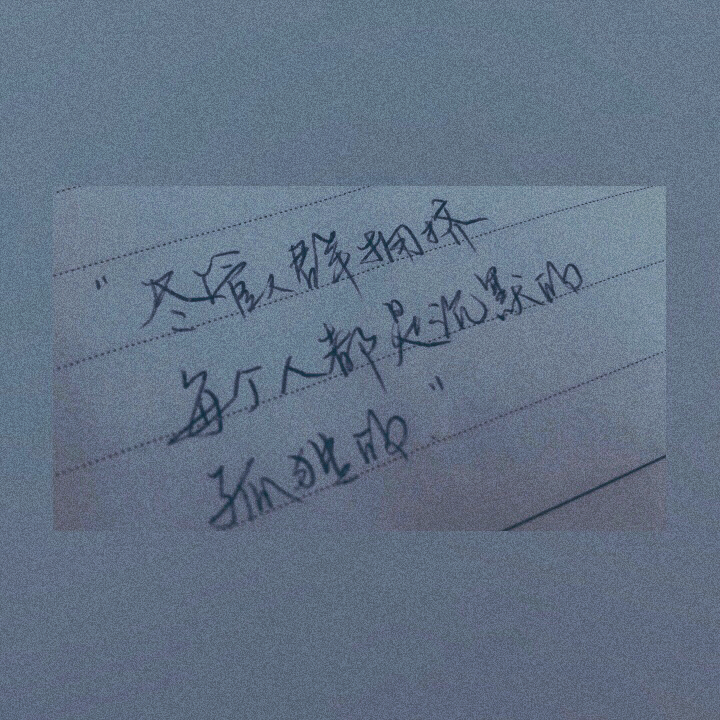 "尽管人群拥挤
每个人都是沉默的
孤独的"